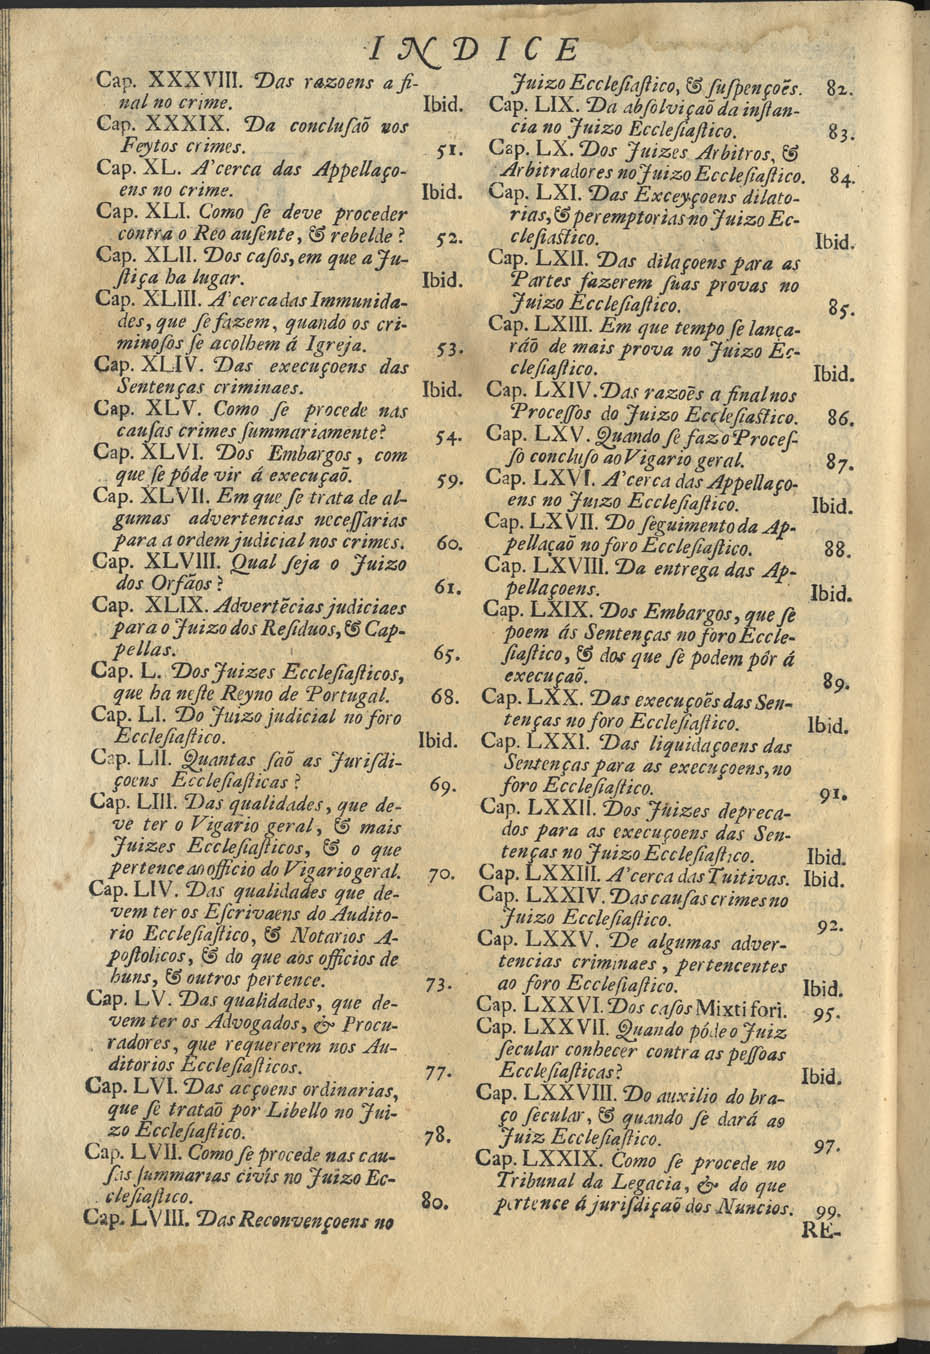 INDICE
Cap. XXXVIII. Das razoens a fi-
nal no crime. Ibid.
Cap. XXXIX. Da concluſaõ nos
Feytos crimes. 51.
Cap. XL. A'cerca das Appellaço-
ens no crime. Ibid.
Cap. XLI. Como ſe deve proceder
contra o Reo auſente, & rebelde? 52.
Cap. XLII. Dos caſos, em que a Ju-
ſtiça ha lugar. Ibid.
Cap. XLIII. A'cerca das Immunida-
des, que ſe fazem, quando os cri-
minoſos ſe acolhem á Igreja. 53.
Cap. XLIV. Das execuçoens das
Sentenças criminaes. Ibid.
Cap. XLV. Como ſe procede nas
cauſas crimes ſummariamente? 54.
Cap. XLVI. Dos Embargos, com
que ſe póde vir á execuçaõ. 59.
Cap. XLVII. Em que ſe trata de al-
gumas advertencias neceſſarias
para a ordem judicial nos crimes. 60.
Cap. XLVIII. Qual ſeja o Juizo
dos Orfãos? 61.
Cap. XLIX. Advertẽcias judiciaes
para o Juizo dos Reſiduos, & Cap-
pellas. 65.
Cap. L. Dos Juizes Eccleſiaſticos,
que ha neſte Reyno de Portugal. 68.
Cap. LI. Do Juizo judicial no foro
Eccleſiaſtico. Ibid.
Cap. LII. Quantas ſaõ as Juriſdi-
çoens Eccleſiaſticas? 69.
Cap. LIII. Das qualidades, que de-
ve ter o Vigario geral, & mais
Juizes Eccleſiaſticos, & o que
pertence ao officio do Vigario geral. 70.
Cap. LIV. Das qualidades que de-
vem ter os Eſcrivaens do Audito-
rio Eccleſiaſtico, & Notarios A-
poſtolicos, & do que aos officios de
huns, & outros pertence. 73.
Cap. LV. Das qualidades, que de-
vem ter os Advogados, & Procu-
radores, que requererem nos Au-
ditorios Eccleſiaſticos. 77.
Cap. LVI. Das acçoens ordinarias,
que ſe trataõ por Libello no Jui-
zo Eccleſiaſtico. 78.
Cap. LVII. Como ſe procede nas cau-
ſas ſummarias civîs no Juizo Ec-
cleſiaſtico. 80.
Cap. LVIII. Das Reconvençoens no
Juizo Eccleſiaſtico, & ſuſpençoẽs. 82.
Cap. LIX. Da abſolviçaõ da inſtan-
cia no Juizo Eccleſiaſtico. 83.
Cap. LX. Dos Juizes Arbitros, &
Arbitradores no Juizo Eccleſiaſtico. 84.
Cap. LXI. Das Exceyçoens dilato-
rias, & peremptorias no Juizo Ec-
cleſiaſtico. Ibid.
Cap. LXII. Das dilaçoens para as
Partes fazerem ſuas provas no
Juizo Eccleſiaſtico. 85.
Cap. LXIII. Em que tempo ſe lança-
ráõ de mais prova no Juizo Ec-
cleſiaſtico. Ibid.
Cap. LXIV. Das razoẽs a final nos
Proceſſos do Juizo Eccleſiaſtico. 86.
Cap. LXV. Quando ſe faz o Proceſ-
ſo concluſo ao Vigario geral. 87.
Cap. LXVI. A'cerca das Appellaço-
ens no Juizo Eccleſiaſtico. Ibid.
Cap. LXVII. Do ſeguimento da Ap-
pellaçaõ no foro Eccleſiaſtico. 88.
Cap. LXVIII. Da entrega das Ap-
pellaçoens. Ibid.
Cap. LXIX. Dos Embargos, que ſe
poem ás Sentenças no foro Eccle-
ſiaſtico, & dos que ſe podem pôr á
execuçaõ. 89.
Cap. LXX. Das execuçoẽs das Sen-
tenças no foro Eccleſiaſtico. Ibid.
Cap. LXXI. Das liquidaçoens das
Sentenças para as execuçoens, no
foro Eccleſiaſtico. 91.
Cap. LXXII. Dos Juizes depreca-
dos para as execuçoens das Sen-
tenças no Juizo Eccleſiaſtico. Ibid.
Cap. LXXIII. A'cerca das Tuitivas. Ibid.
Cap. LXXIV. Das cauſas crimes no
Juizo Eccleſiaſtico. 92.
Cap. LXXV. De algumas adver-
tencias criminaes, pertencentes
ao foro Eccleſiaſtico. Ibid.
Cap. LXXVI. Dos caſos Mixti fori. 95.
Cap. LXXVII. Quando póde o Juiz
ſecular conhecer contra as peſſoas
Eccleſiaſticas? Ibid.
Cap. LXXVIII. Do auxilio do bra-
ço ſecular, & quando ſe dará ao
Juiz Eccleſiaſtico. 97.
Cap. LXXIX. Como ſe procede no
Tribunal da Legacia, & do que
pertence á juriſdiçaõ dos Nuncios. 99.
RE-